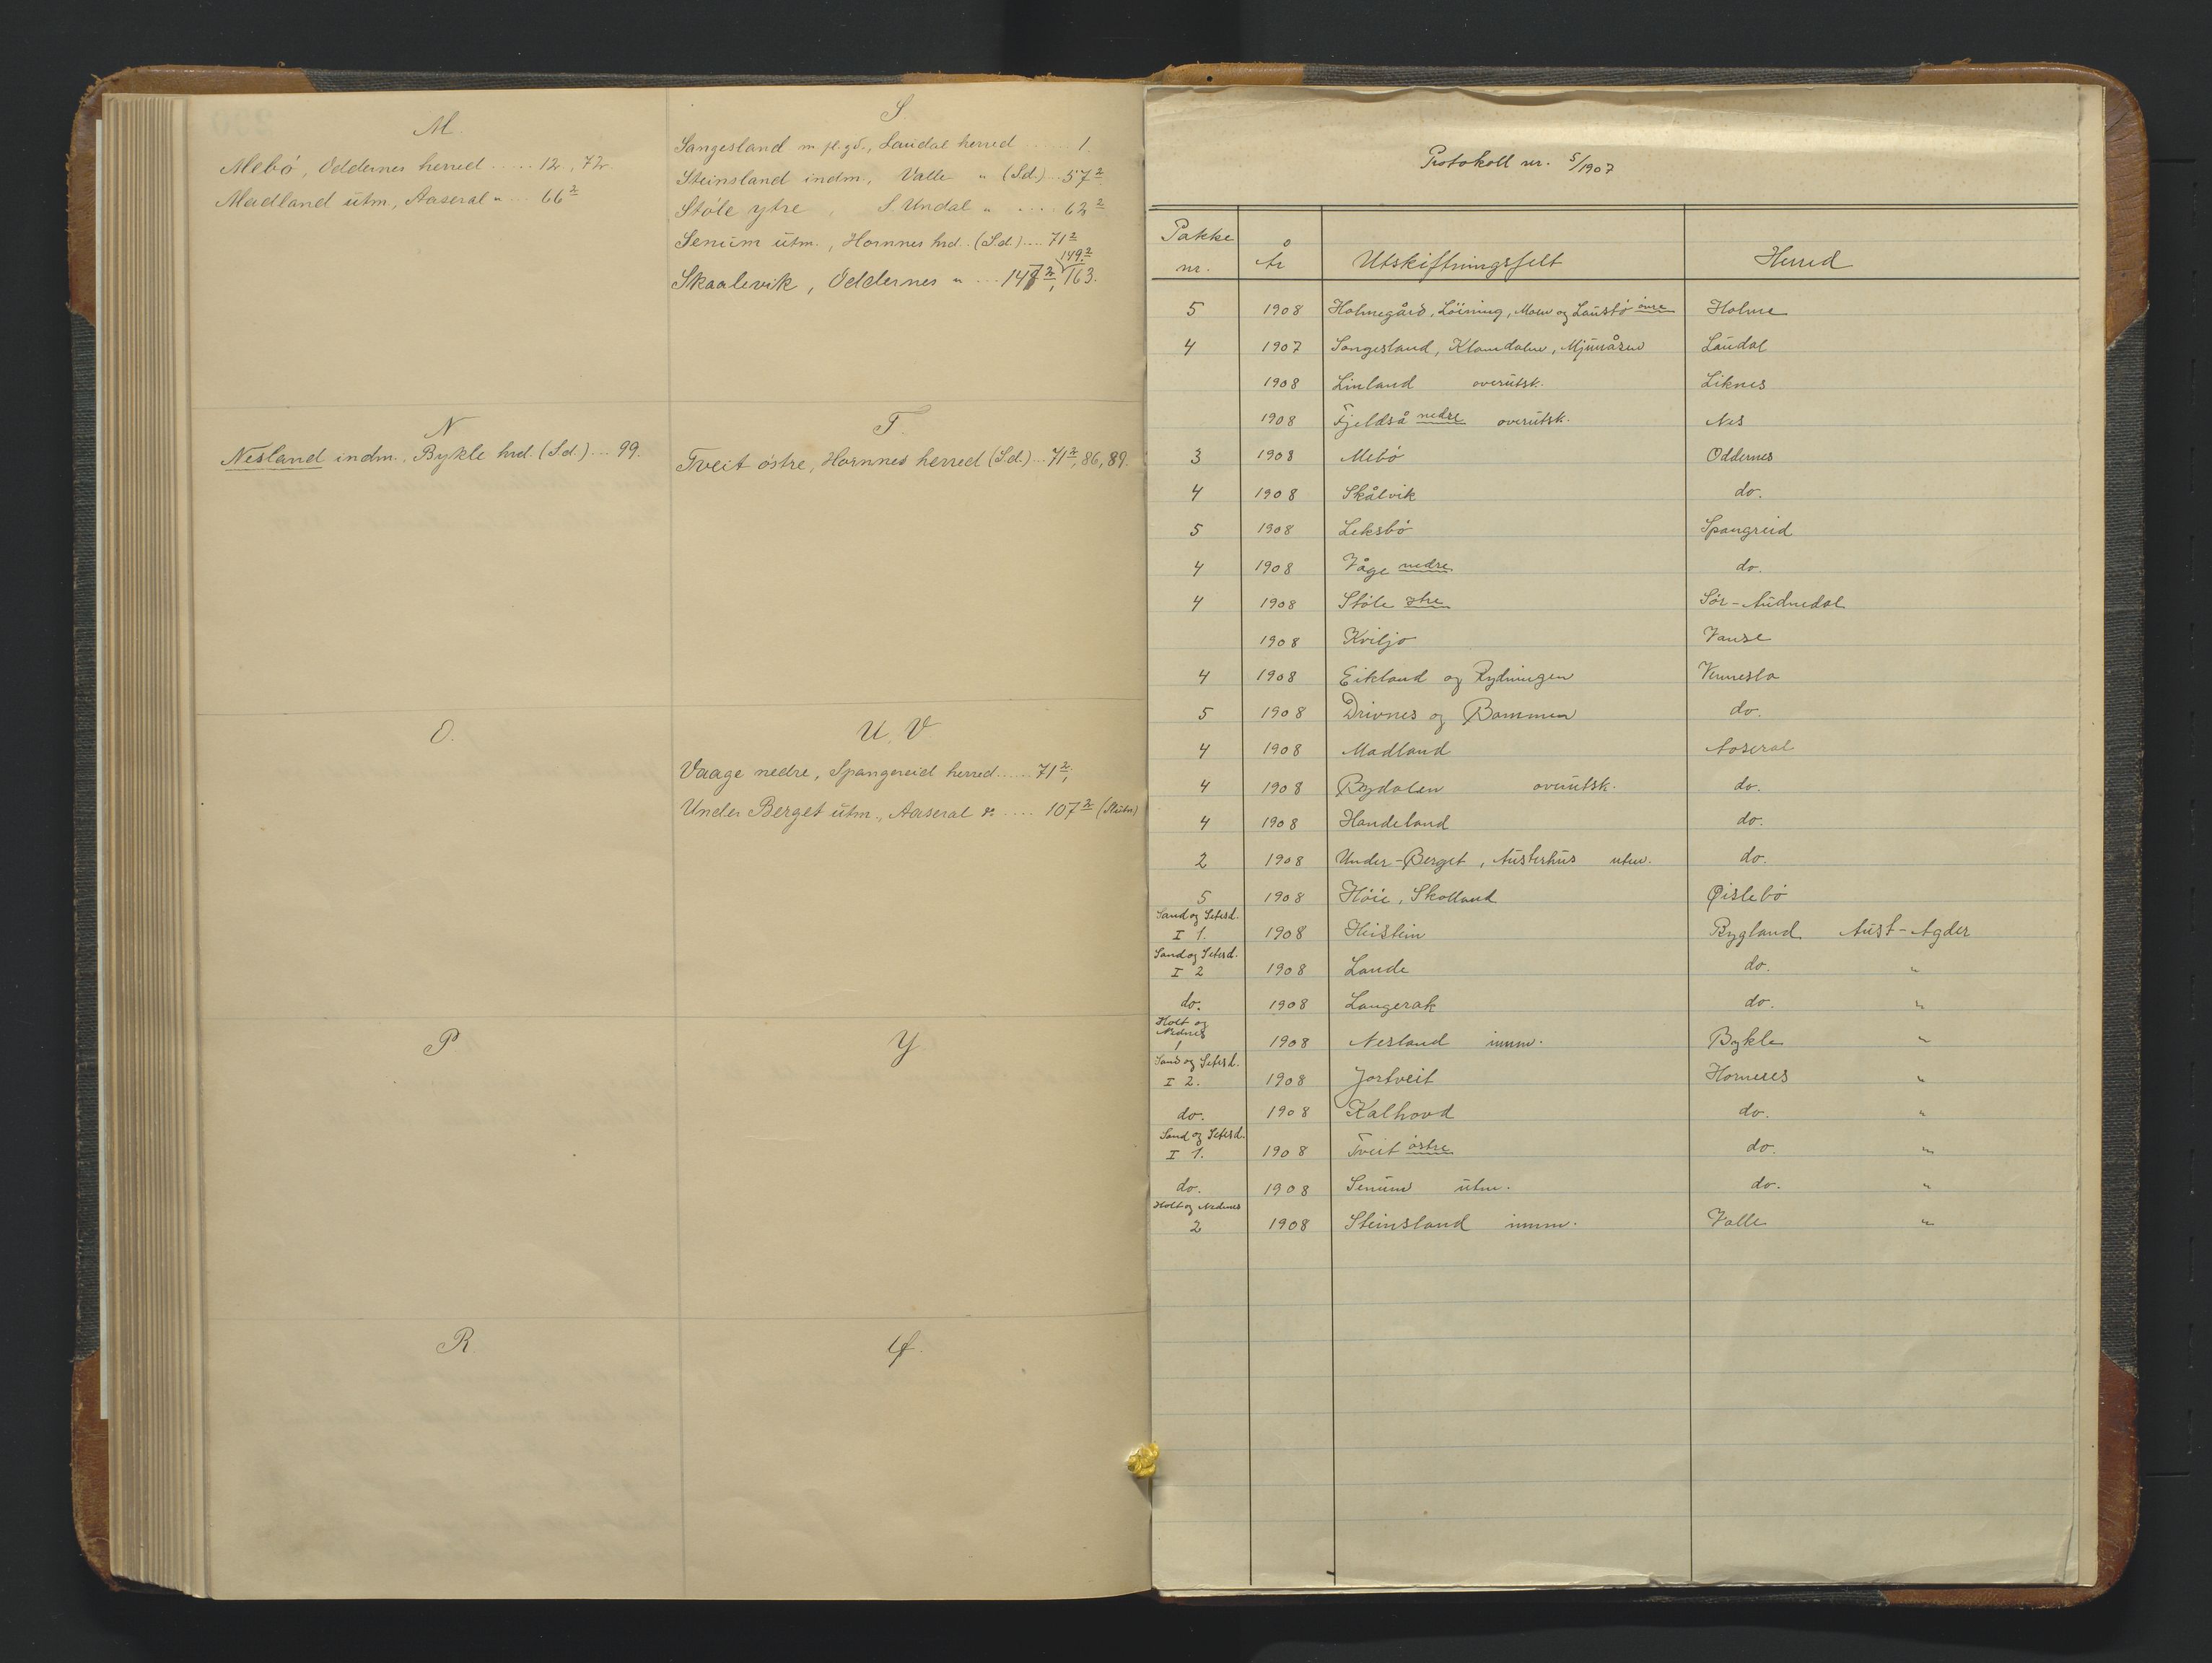 M.
Mebö, Oddernes herred ..... 12, 72.
Madland utm., Aaseral " ... 66²
N
Nesland indm., Bykle hrd. (Sd.) ... 99.
O.
P
R
S
Sangesland m. fl. gd., Laudal herred ..... 1.
Steinsland indm., Valle " (Sd.) ... 57²
Stöle ytre, S. Undal " .... 62²
Senum utm., Hornnes hrd. (Sd.) .... 71²
149²
Skaalevik, Oddernes " ... 148², 163.
T.
Tveit östre, Hornnes herred (Sd.) ... 71², 86, 89.
U, V.
Vaage nedre, Spangereid herred ..... 71²,
Under Berget utm., Aaseral do .... 107² (Slutn)
Y
Ø.
Protokoll nr. 5/1907
Pakke nr. År Utskiftningsfelt Herred
5 1908 Holmegård, Löining, Moen og Laustö övre Holme
4 1907 Sangesland, Klamdalen, Mjunåsen Laudal
1908 Linland overutsk. Liknes
1908 Fjeldså nedre overutsk. Nes
3 1908 Mebö Oddernes
4 1908 Skålvik do.
5 1908 Leksbö Spangreid
4 1908 Våge nedre do.
4 1908 Stöle ytre Sör-Audnedal
1908 Kviljo Vanse
4 1908 Eikland og Rydningen Vennesla
5 1908 Drivnes og Bommen do.
4 1908 Madland Aoseral
4 1908 Bydalen overutsk. do.
4 1908 Handeland do.
2 1908 Under-Berget, Austerhus utm. do.
5 1908 Höie, Skolland Øislebö
Sand og Setesd. I 1. 1908 Heistein Bygland Aust-Agder
Sand og Setesd. I 2 1908 Lande do. "
do. 1908 Langerak do. "
Holt og Nedenes 1 1908 Nesland innm. Bykle "
Sand og Setesd. I 2. 1908 Jortveit Hornnes "
do. 1908 Kalhovd do. "
Sand og Setesd. I 1. 1908 Tveit östre do. "
do. 1908 Senum utm. do. "
Holt og Nedenes 2 1908 Steinsland innm. Valle "